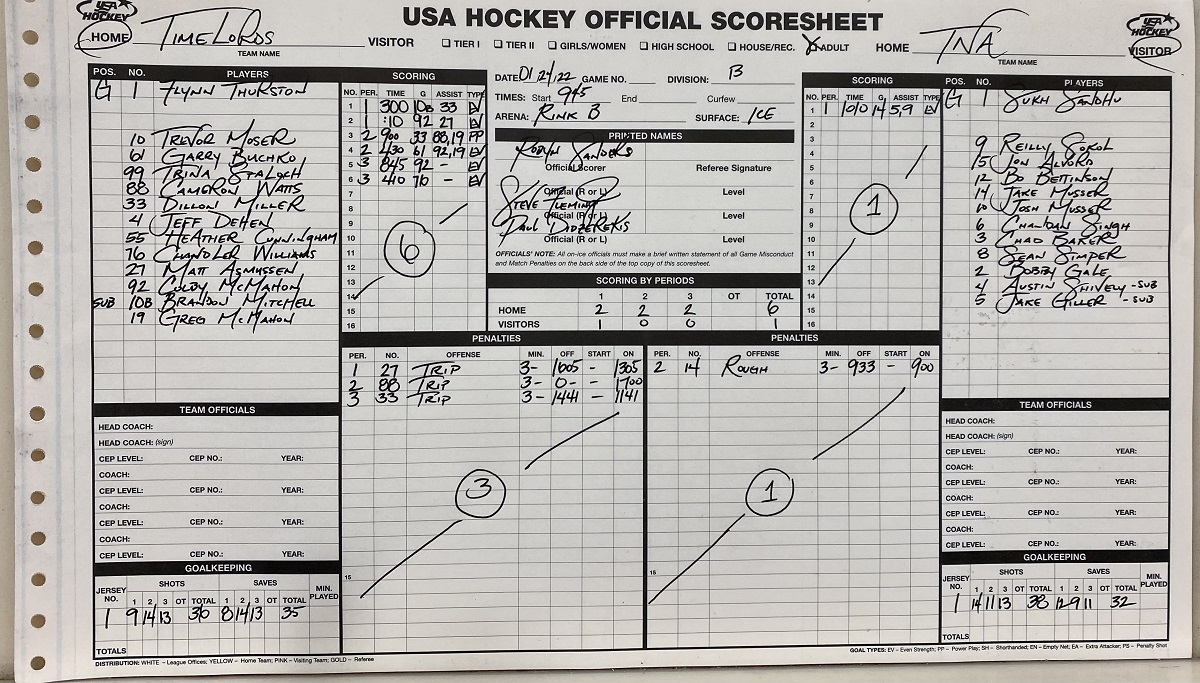 USA HOCKEY OFFICIAL SCORESHEET
USA HOCKEY
HOME TIMELORDS VISITOR ☐ TIER I ☐ TIER II ☐ GIRLS/WOMEN ☐ HIGH SCHOOL ☐ HOUSE/REC. ☒ ADULT HOME TNA VISITOR
TEAM NAME
TEAM NAME
USA HOCKEY
POS. NO. PLAYERS
G 1 FLYNN THURSTON
10 TREVOR MOSER
61 GARRY BUCHKO
99 TRINA STALOCH
88 CAMERON WATTS
33 DILLON MILLER
4 JEFF DEHEN
55 HEATHER CUNNINGHAM
76 CHANDLER WILLIAMS
27 MATT ASMUSSEN
92 COLBY MCMAHON
SUB 10B BRANDON MITCHELL
19 GREG MCMAHON
SCORING
NO. PER. TIME G ASSIST TYPE
1 1 300 10B 33 EV
2 1 :10 92 27 EV
3 2 900 33 88,19 PP
4 2 430 61 92,19 EV
5 3 845 92 - EV
6 3 440 76 - EV
7
8
9
10
11
12
13
14
15
16
6
DATE 01/24/22 GAME NO. DIVISION: B
TIMES: Start 945 End Curfew
ARENA: RINK B SURFACE: ICE
PRINTED NAMES
ROBYN SANDERS
Official Scorer Referee Signature
Official (R or L) Level
STEVE FLEMING
Official (R or L) Level
PAUL
Official (R or L) Level
OFFICIALS' NOTE: All on-ice officials must make a brief written statement of all Game Misconduct
and Match Penalties on the back side of the top copy of this scoresheet.
SCORING BY PERIODS
1 2 3 OT TOTAL
HOME 2 2 2 6
VISITORS 1 0 0 1
SCORING
NO. PER. TIME G ASSIST TYPE
1 1 1010 14 5,9 EV
2
3
4
5
6
7
8
9
10
11
12
13
14
15
16
1
POS. NO. PLAYERS
G 1 SUKH SANDHU
9 REILLY SOKOL
15 JON ALVORD
12 BO BETTINSON
14 JAKE MUSSER
10 JOSH MUSSER
6 CHANDAN SINGH
3 CHAD BAKER
8 SEAN SIMPER
2 BOBBY GALE
4 AUSTIN SHIVELY -SUB
5 JAKE GILLER -SUB
PENALTIES
PER. NO. OFFENSE MIN. OFF START ON
1 27 TRIP 3- 1605 - 1305
2 88 TRIP 3- 0- - 1700
3 33 TRIP 3- 1441 - 1141
3
15
PENALTIES
PER. NO. OFFENSE MIN. OFF START ON
2 14 ROUGH 3- 933 - 900
1
15
TEAM OFFICIALS
HEAD COACH:
HEAD COACH: (sign)
CEP LEVEL: CEP NO.: YEAR:
COACH:
CEP LEVEL: CEP NO.: YEAR:
COACH:
CEP LEVEL: CEP NO.: YEAR:
COACH:
CEP LEVEL: CEP NO.: YEAR:
GOALKEEPING
JERSEY NO. SHOTS SAVES MIN. PLAYED
1 2 3 OT TOTAL 1 2 3 OT TOTAL
1 9 14 13 36 8 14 13 35
TOTALS
TEAM OFFICIALS
HEAD COACH:
HEAD COACH: (sign)
CEP LEVEL: CEP NO.: YEAR:
COACH:
CEP LEVEL: CEP NO.: YEAR:
COACH:
CEP LEVEL: CEP NO.: YEAR:
COACH:
CEP LEVEL: CEP NO.: YEAR:
GOALKEEPING
JERSEY NO. SHOTS SAVES MIN. PLAYED
1 2 3 OT TOTAL 1 2 3 OT TOTAL
1 14 11 13 38 12 9 11 32
TOTALS
DISTRIBUTION: WHITE – League Offices; YELLOW – Home Team; PINK – Visiting Team; GOLD – Referee
GOAL TYPES: EV – Even Strength; PP – Power Play; SH – Shorthanded; EN – Empty Net; EA – Extra Attacker; PS – Penalty Shot